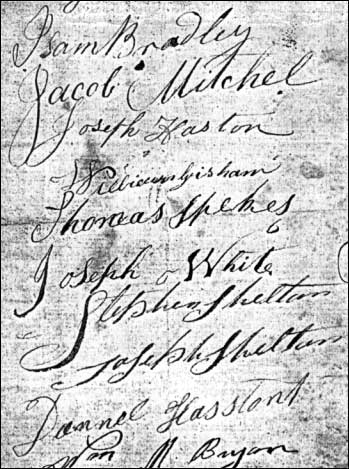 Isam Bradley
Jacob Mitchel
Joseph Haston
William Gisham
Thomas Spekes
Joseph White
Stephen Sheltun
Joseph Sheltun
Dannel Hasstont
Wm M Bryan